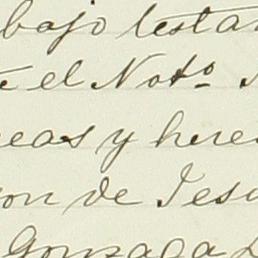 bajo testa
e el Notº
eas y here
on de Jesu
Gonzaga